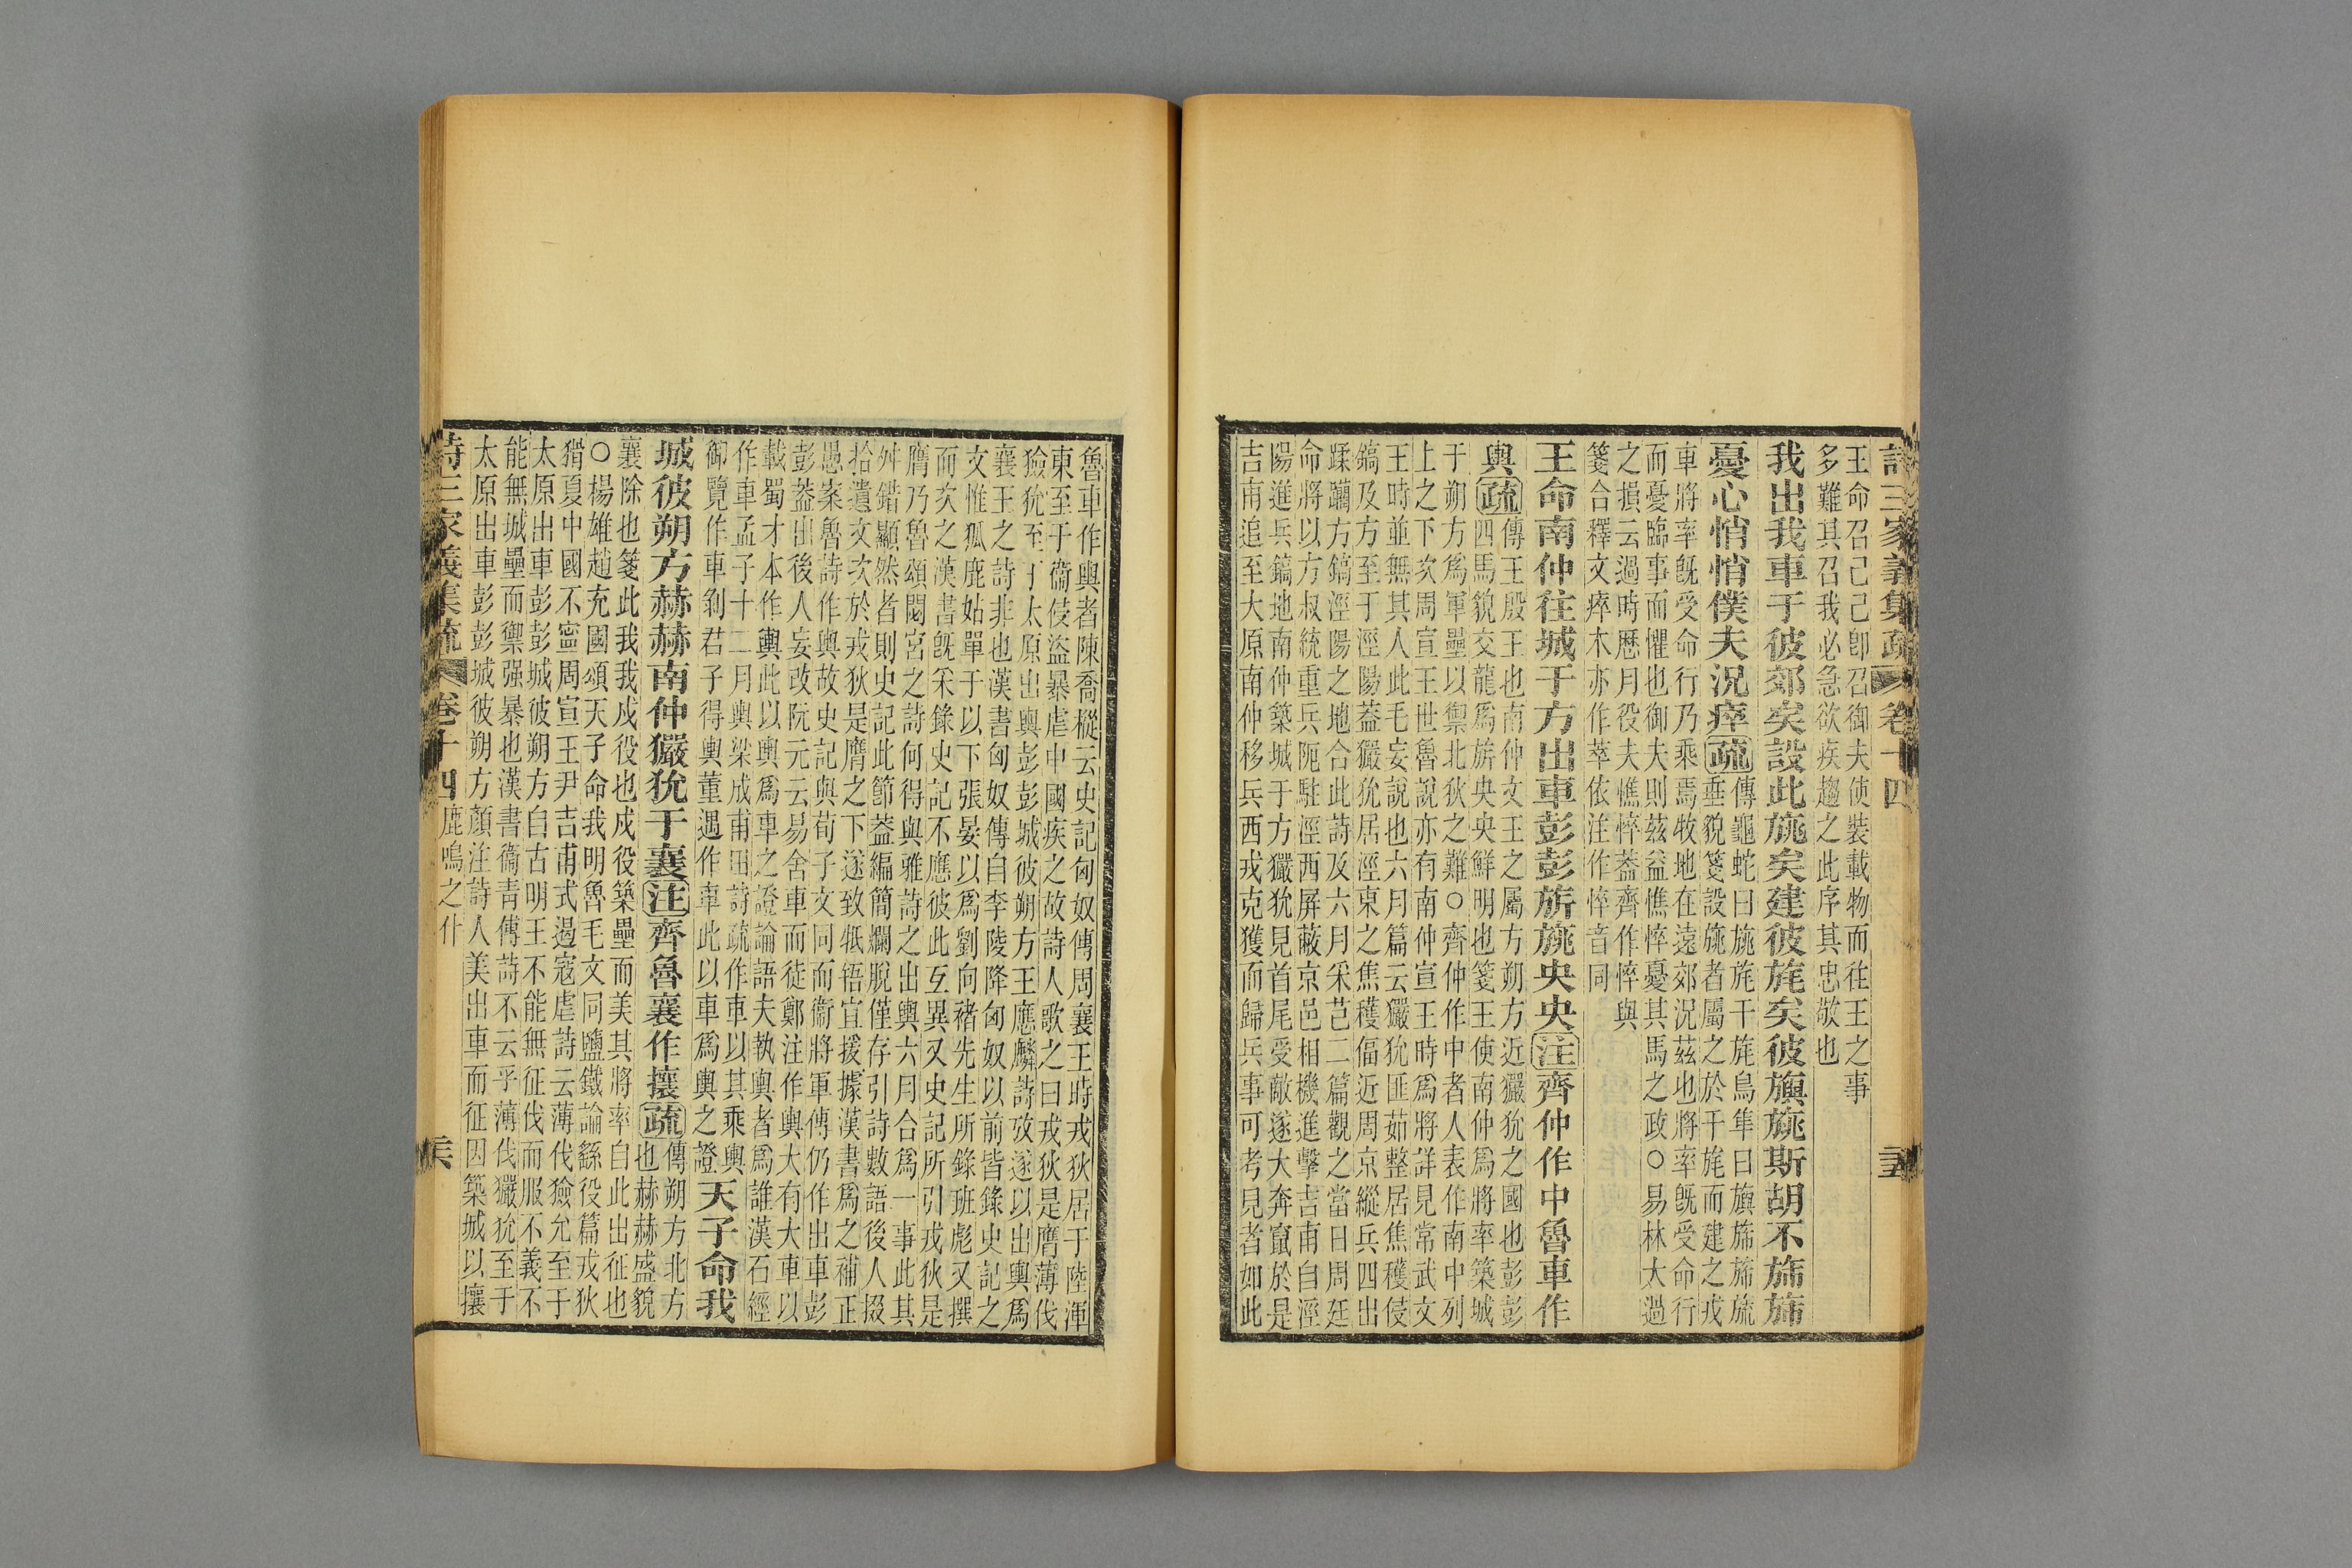 詩三家義集疏 卷十四 三五
王命召己己卽召御夫使裝載物而往王之事
多難其召我必急欲疾趨之此序其忠敬也
我出我車于彼郊矣設此旐矣建彼旄矣彼旟旐斯胡不旆旆
憂心悄悄僕夫況瘁疏傳龜蛇曰旐旄干旄鳥隼曰旟旆旆旒
垂貌箋設旐者屬之於干旄而建之戎
車將率旣受命行乃乘焉牧地在遠郊況茲也將率旣受命行
而憂臨事而懼也御夫則茲益憔悴憂其馬之政○易林大過
之損云過時歷月役夫憔悴蓋齊作悴與
箋合釋文瘁木亦作萃依注作悴音同
王命南仲往城于方出車彭彭旂旐央央注齊仲作中魯車作
輿疏傳王殷王也南仲文王之屬方朔方近玁狁之國也彭彭
四馬貌交龍爲旂央央鮮明也箋王使南仲爲將率築城
于朔方爲軍壘以禦北狄之難○齊仲作中者人表作南中列
上之下次周宣王世魯說亦有南仲宣王時爲將詳見常武文
王時並無其人此毛妄說也六月篇云玁狁匪茹整居焦穫侵
鎬及方至于涇陽蓋玁狁居涇東之焦穫偪近周京縱兵四出
蹂躪方鎬涇陽之地合此詩及六月采芑二篇觀之當日周廷
命將以方叔統重兵阨駐涇西屏蔽京邑相機進擊吉甫自涇
陽進兵鎬地南仲築城于方玁狁見首尾受敵遂大奔竄於是
吉甫追至大原南仲移兵西戎克獲而歸兵事可考見者如此
魯車作輿者陳喬樅云史記匈奴傳周襄王時戎狄居于陸渾
東至于衞侵盜暴虐中國疾之故詩人歌之曰戎狄是膺薄伐
獫狁至于太原出輿彭彭城彼朔方王應麟詩攷遂以出輿爲
襄王之詩非也漢書匈奴傳自李陵降匈奴以前皆錄史記之
文惟狐鹿姑單于以下張晏以爲劉向褚先生所錄班彪又撰
而次之漢書旣采錄史記不應彼此互異又史記所引戎狄是
膺乃魯頌閟宮之詩何得與雅詩之出輿六月合爲一事此其
舛錯顯然者則史記此節蓋編簡爛脫僅存引詩數語後人掇
拾遺文次於戎狄是膺之下遂致牴牾宜援據漢書爲之補正
愚案魯詩作輿故史記與荀子文同而衞將軍傳仍作出車彭
彭蓋出後人妄改阮元云易舍車而徒鄭注作輿大有大車以
載蜀才本作輿此以輿爲車之證論語夫執輿者爲誰漢石經
作車孟子十二月輿梁成甫田詩疏作車以其乘輿
御覽作車剝君子得輿董遇作車此以車爲輿之證天子命我
城彼朔方赫赫南仲玁狁于襄注齊魯襄作攘疏傳朔方北方
也赫赫盛貌
襄除也箋此我我戍役也戍役築壘而美其將率自此出征也
○楊雄趙充國頌天子命我明魯毛文同鹽鐵論繇役篇戎狄
猾夏中國不寧周宣王尹吉甫式遏寇虐詩云薄伐獫允至于
太原出車彭彭城彼朔方自古明王不能無征伐而服不義不
能無城壘而禦强暴也漢書衞青傳詩不云乎薄伐玁狁至于
太原出車彭彭城彼朔方顏注詩人美出車而征因築城以攘
詩三家義集疏 卷十四 鹿鳴之什 三六